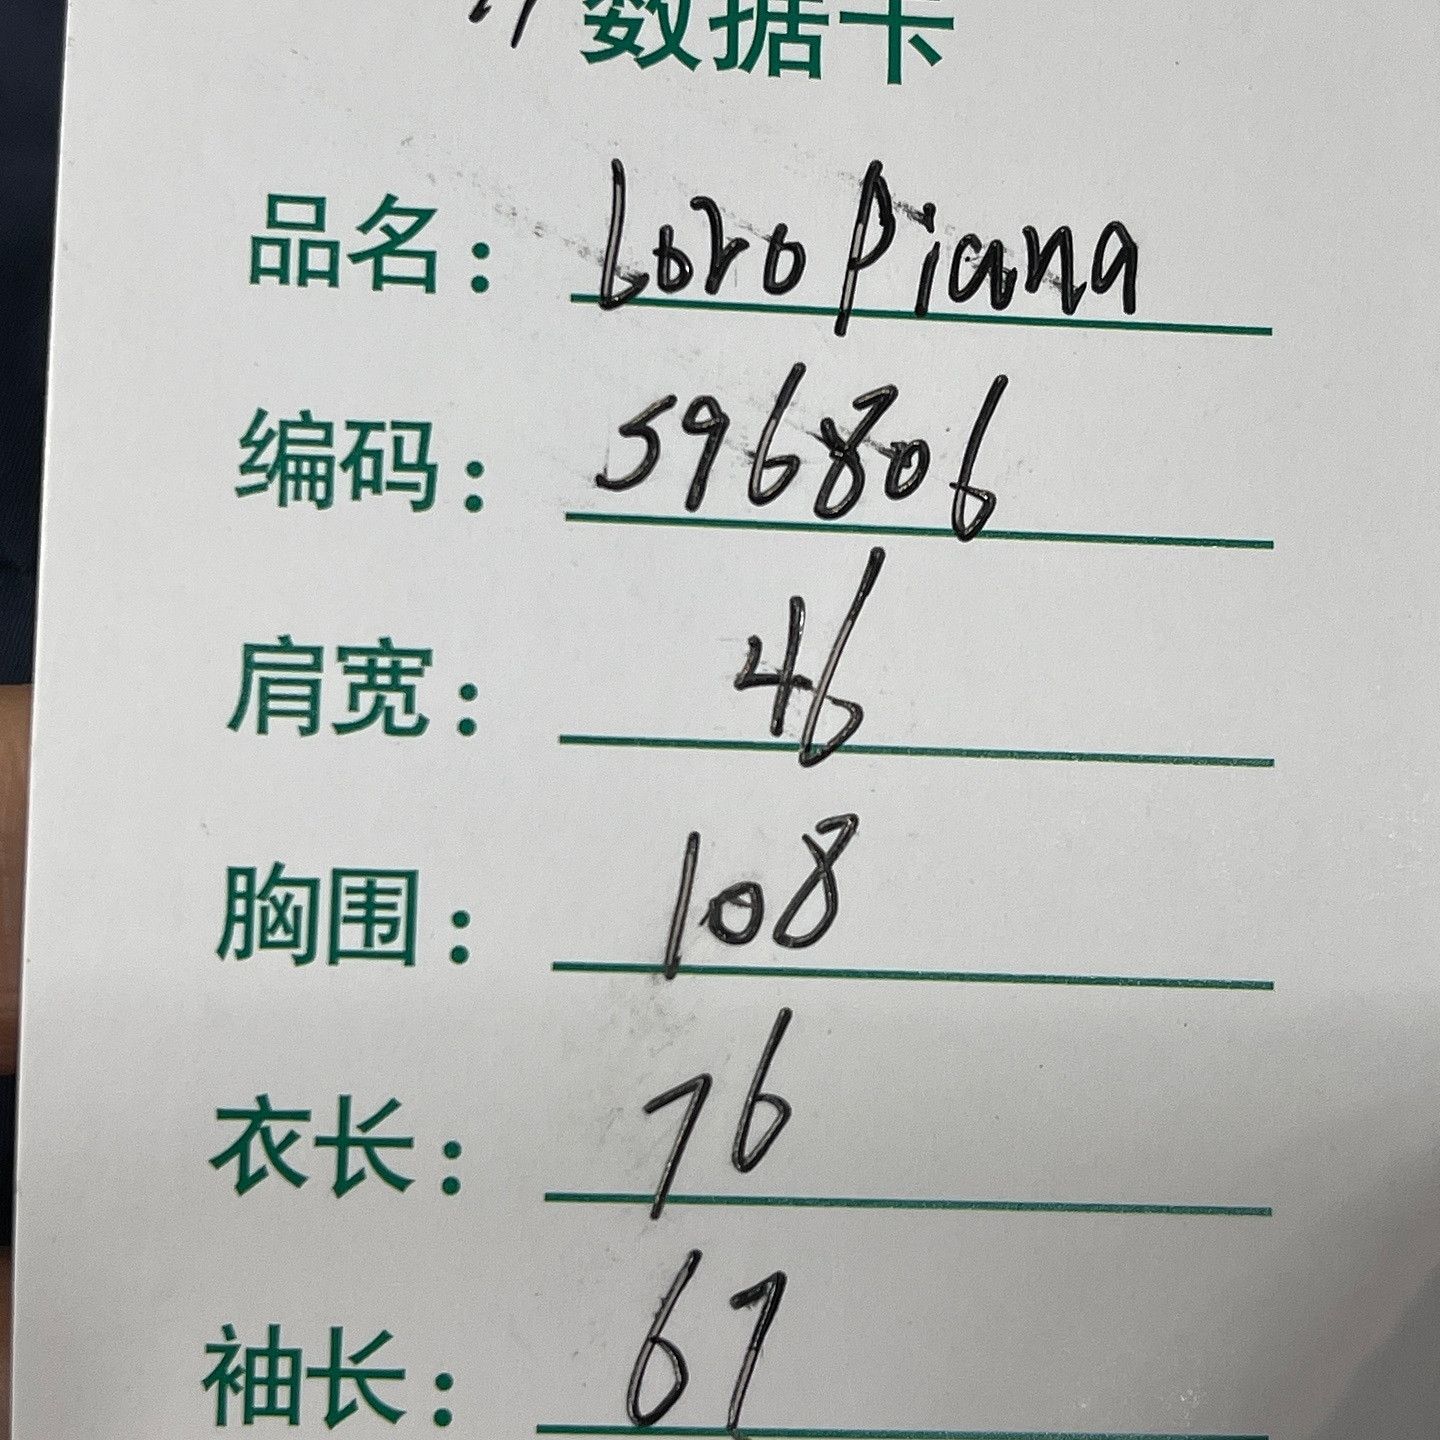 数据卡
品名: Loro Piana
编码: 596806
肩宽: 46
胸围: 108
衣长: 76
袖长: 67